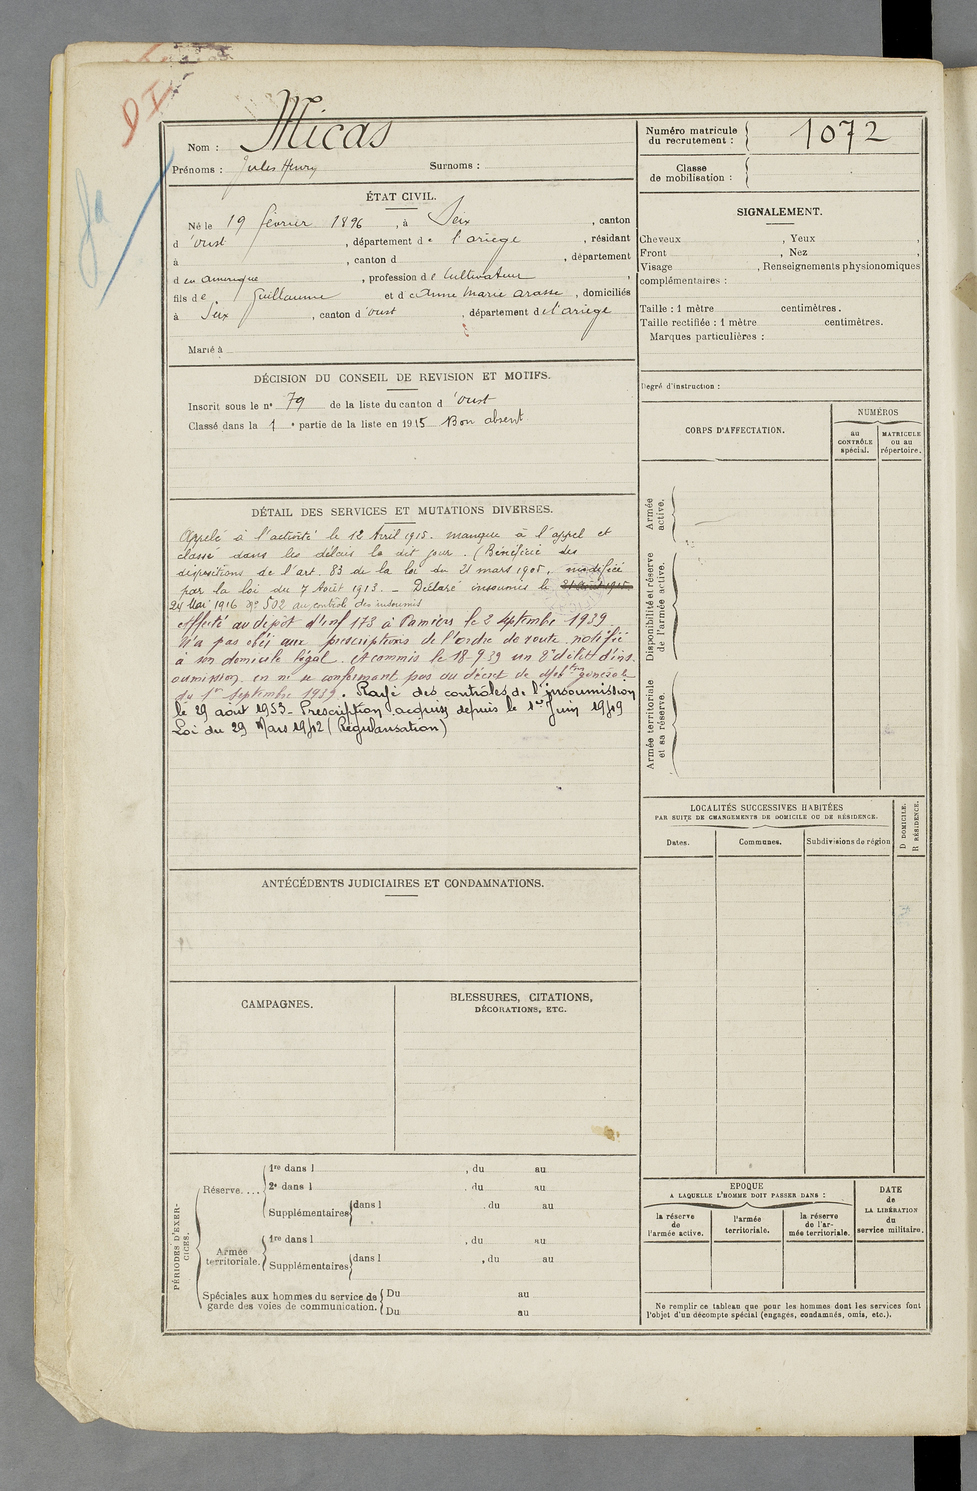 DI
Nom : Micas
Prénoms : Jules Henry Surnoms :
Numéro matricule
du recrutement : 1072
Classe
de mobilisation :
ÉTAT CIVIL.
Né le 19 février 1896, à Seix, canton
d'Oust, département de l'ariège, résidant
à , canton d , département
d en amerique, profession de Cultivateur,
fils de Guillaume et de Anne Marie arasse, domiciliés
à Seix, canton d'oust, département de l'ariège
Marié à
SIGNALEMENT.
Cheveux , Yeux ,
Front , Nez ,
Visage , Renseignements physionomiques
complémentaires :
Taille : 1 mètre centimètres.
Taille rectifiée : 1 mètre centimètres.
Marques particulières :
Degré d'instruction :
DÉCISION DU CONSEIL DE REVISION ET MOTIFS.
Inscrit sous le n° 79 de la liste du canton d'Oust
Classé dans la 1e partie de la liste en 1915 Bon absent
DÉTAIL DES SERVICES ET MUTATIONS DIVERSES.
Appelé à l'activité le 12 Avril 1915. manque à l'appel et
classé dans les délais le dit jour. (Bénéficie des
dispositions de l'art. 83 de la loi du 21 mars 1905, modifiée
par la loi du 7 Août 1913. - Déclaré insoumis le
24 Mai 1916 N° 502 au contrôle des insoumis
affecté au dépôt d'inf 173 à Pamiers le 2 septembre 1939
N'a pas obéi aux prescriptions de l'ordre de route notifié
à son domicile légal. A commis le 18-9-39 un 2e délit d'ins
oumission en ne se conformant pas au décret de mobtion générale
du 1er septembre 1939. Rayé des contrôles de l'insoumission
le 29 août 1953 - Prescription acquise depuis le 1er Juin 1949
Loi du 29 Mars 1942 (Régularisation)
CORPS D'AFFECTATION.
NUMÉROS
au
CONTRÔLE
spécial.
MATRICULE
ou au
répertoire.
Armée
active.
Disponibilité et réserve
de l'armée active.
Armée territoriale
et sa réserve.
LOCALITÉS SUCCESSIVES HABITÉES
PAR SUITE DE CHANGEMENTS DE DOMICILE OU DE RÉSIDENCE.
Dates.
Communes.
Subdivisions de région
D DOMICILE.
R RÉSIDENCE.
ANTÉCÉDENTS JUDICIAIRES ET CONDAMNATIONS.
CAMPAGNES.
BLESSURES, CITATIONS,
DÉCORATIONS, ETC.
PÉRIODES D'EXER-
CICES.
Réserve....
1re dans l , du au
2e dans l , du au
Supplémentaires dans l , du au
Armée
territoriale.
1re dans l , du au
Supplémentaires dans l , du au
Spéciales aux hommes du service de
garde des voies de communication.
Du au
Du au
EPOQUE
A LAQUELLE L'HOMME DOIT PASSER DANS :
la réserve
de
l'armée active.
l'armée
territoriale.
la réserve
de l'ar-
mée territoriale.
DATE
de
LA LIBÉRATION
du
service militaire.
Ne remplir ce tableau que pour les hommes dont les services font
l'objet d'un décompte spécial (engagés, condamnés, omis, etc.).